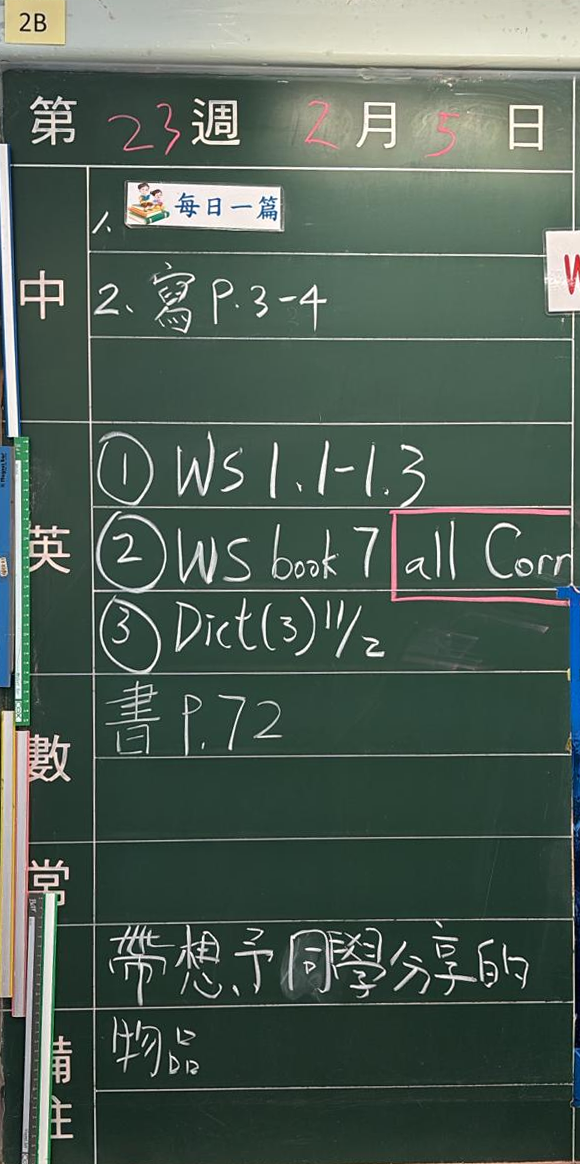 2B
第 23 週 2 月 5 日
中
1. 每日一篇
2. 寫 P.3-4
W
英
① WS 1.1-1.3
② WS book 7 all Corr
③ Dict(3) 11/2
數
書 P.72
常
備註
帶想予同學分享的
物品